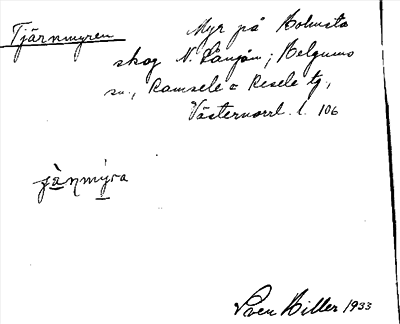 Tjärnmyren
Myr på Holmsta
skog N. Långån; Helgums
sn., Ramsele o Resele tg,
Västernorrl. l. 106
jä̀ṇmýra
Sven Hiller 1933